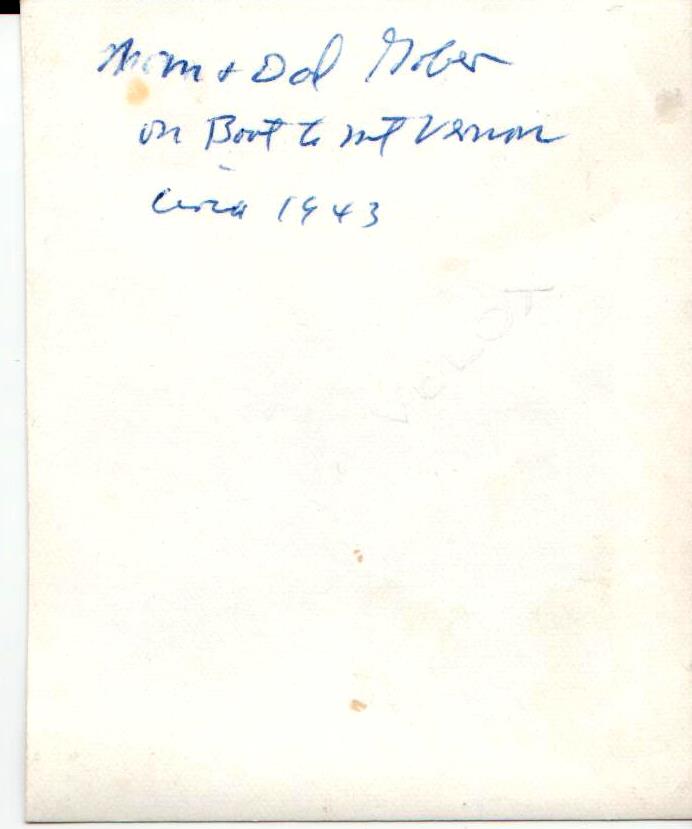 Mom + Dad Gober
on Boat to mt Vernon
circa 1943
VELOX